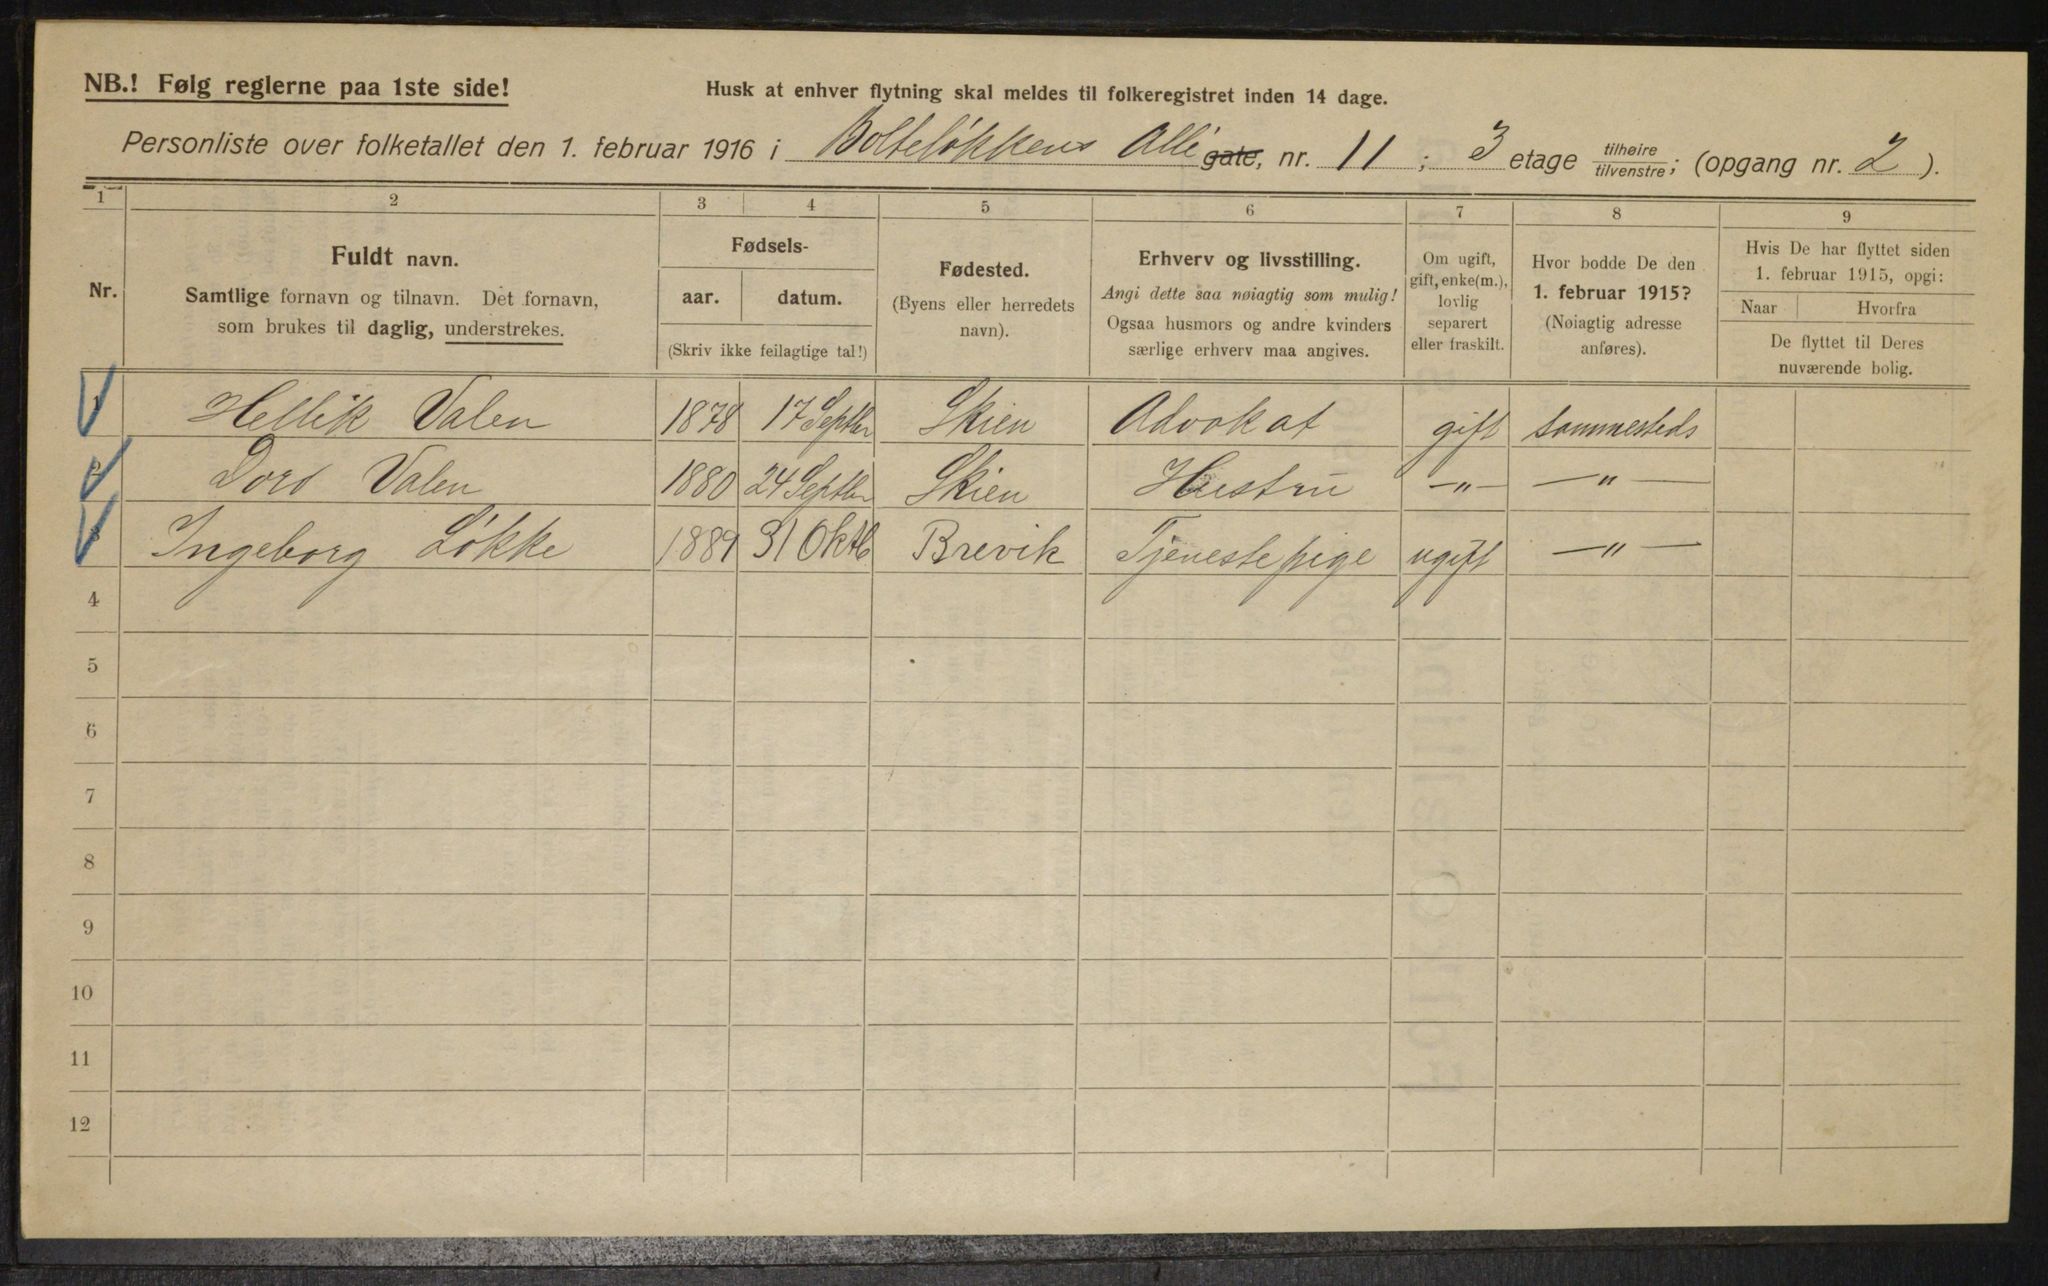 NB.! Følg reglerne paa 1ste side!
Husk at enhver flytning skal meldes til folkeregistret inden 14 dage.
Personliste over folketallet den 1. februar 1916 i Bolteløkkens Allé gate, nr. 11; 3 etage tilhøire/tilvenstre; (opgang nr. 2).
1 2 3 4 5 6 7 8 9
Nr.
Fuldt navn.
Samtlige fornavn og tilnavn. Det fornavn,
som brukes til daglig, understrekes.
Fødsels-
aar. datum.
(Skriv ikke feilagtige tal!)
Fødested.
(Byens eller herredets
navn).
Erhverv og livsstilling.
Angi dette saa nøiagtig som mulig!
Ogsaa husmors og andre kvinders
særlige erhverv maa angives.
Om ugift,
gift, enke(m.),
lovlig
separert
eller fraskilt.
Hvor bodde De den
1. februar 1915?
(Nøiagtig adresse
anføres).
Hvis De har flyttet siden
1. februar 1915, opgi:
Naar Hvorfra
De flyttet til Deres
nuværende bolig.
1 Hellik Valen 1878 17 Septbr Skien Advokat gift sammesteds
2 Valen 1880 24 Septbr Skien Hustru —"— —"—
3 Ingeborg Løkke 1889 31 Oktb Brevik Tjenestepige ugift —"—
4
5
6
7
8
9
10
11
12